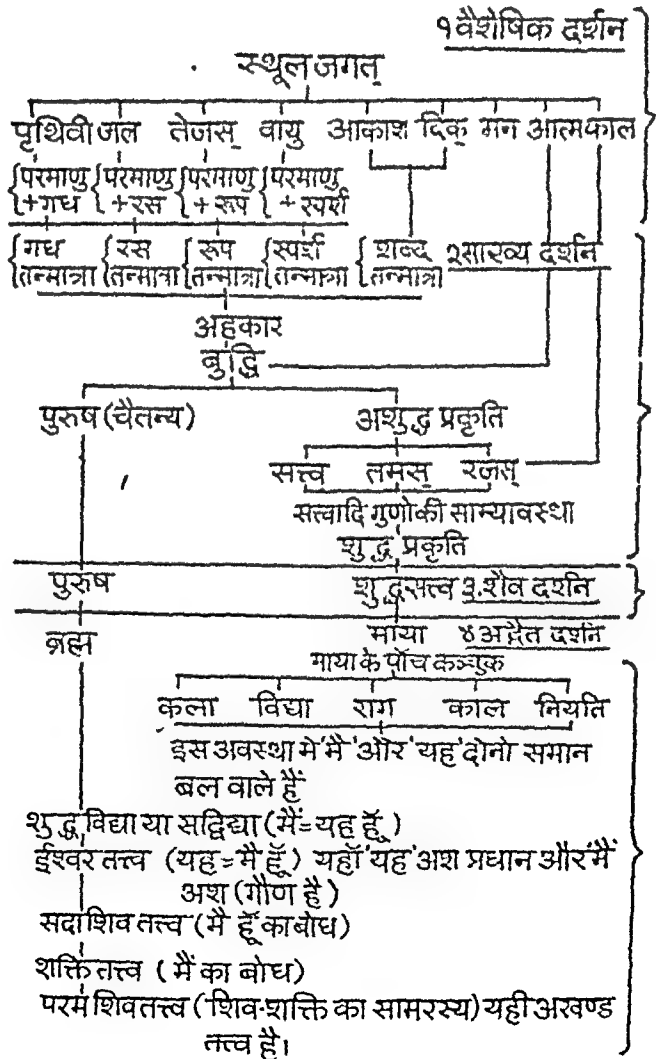 १वैशेषिक दर्शन
स्थूल जगत्
पृथिवी जल तेजस् वायु आकाश दिक् मन आत्म काल
परमाणु परमाणु परमाणु परमाणु
+गध +रस +रूप +स्पर्श
गध रस रूप स्पर्श शब्द २साख्य दर्शन
तन्मात्रा तन्मात्रा तन्मात्रा तन्मात्रा तन्मात्रा
अहकार
बुद्धि
पुरुष (चैतन्य) अशुद्ध प्रकृति
सत्त्व तमस् रजस्
सत्त्वादि गुणो की साम्यावस्था
शुद्ध प्रकृति
पुरुष शुद्धसत्त्व ३.शैव दर्शन
ब्रह्म माया ४अद्वैत दर्शन
माया के पॉच कञ्चुक
कला विद्या राग काल नियति
इस अवस्था मे 'मै' और 'यह' दोनो समान
बल वाले हैं
शुद्ध विद्या या सद्विद्या (मैं=यह हूँ)
ईश्वर तत्त्व (यह=मै हूँ) यहॉ 'यह' अश प्रधान और 'मैं'
अश (गौण है)
सदाशिव तत्त्व (मै हूँ का बोध)
शक्ति तत्त्व (मैं का बोध)
परम शिवतत्त्व (शिव-शक्ति का सामरस्य) यही अखण्ड
तत्त्व है।